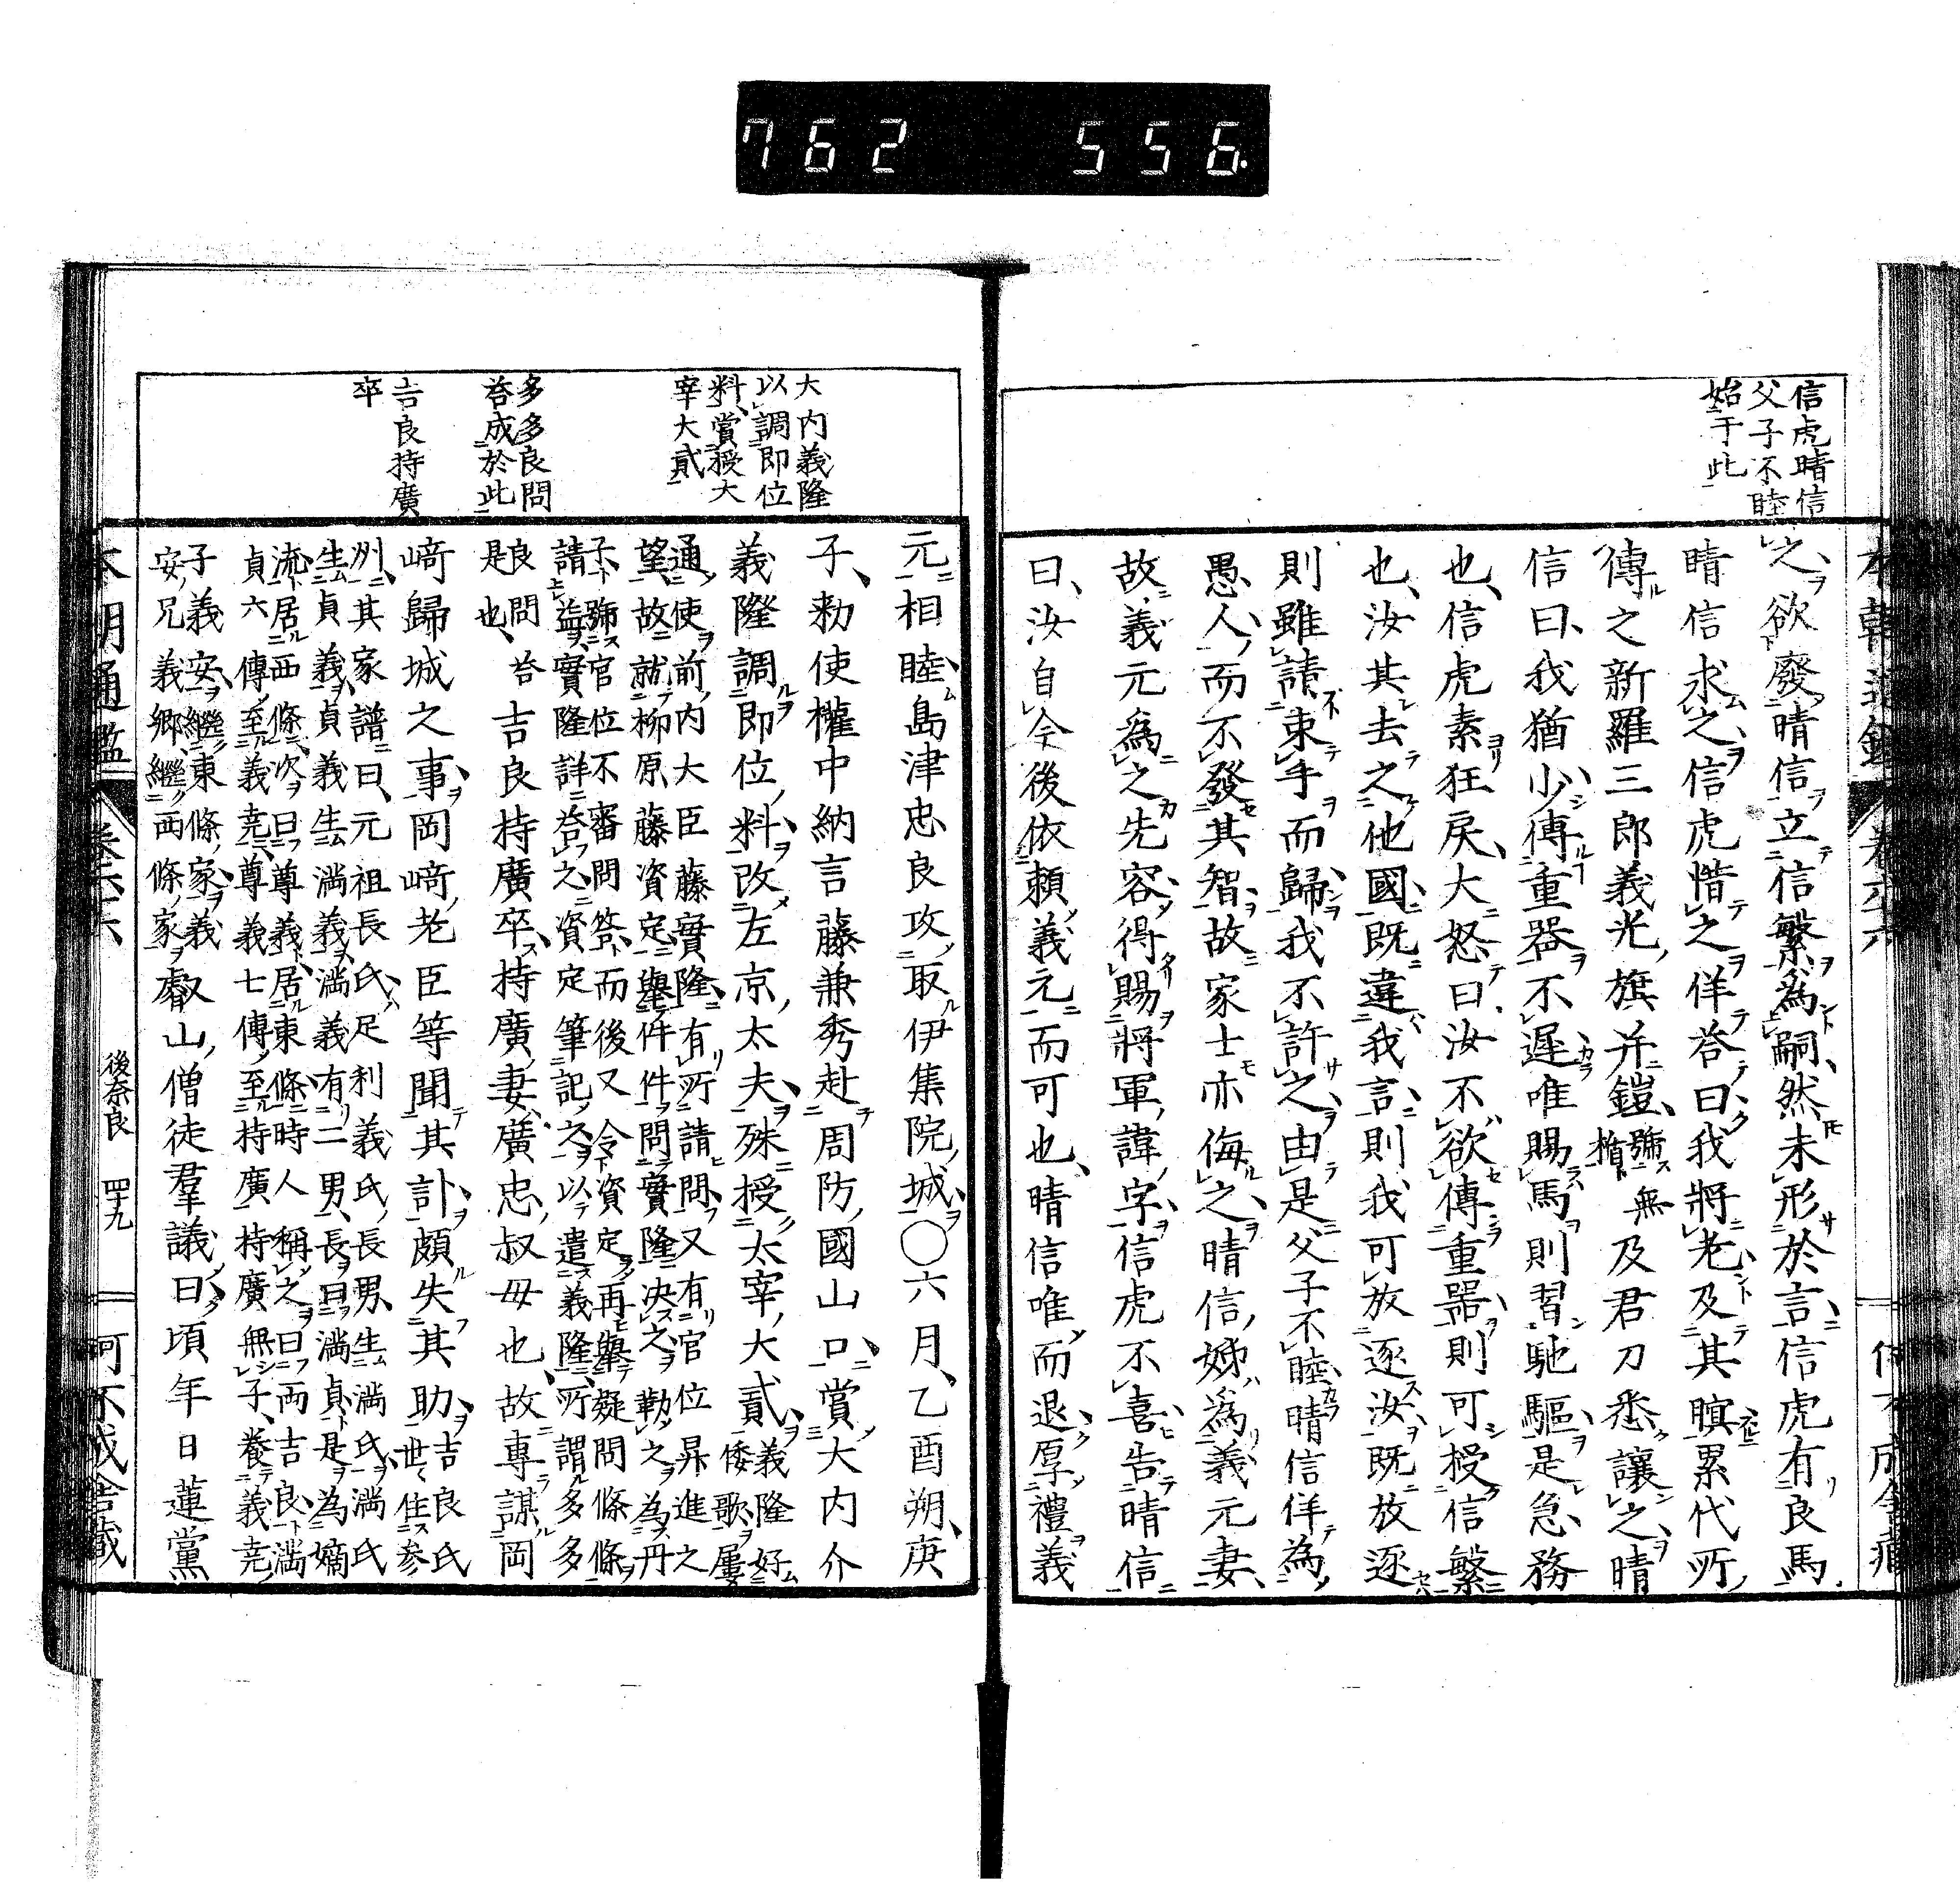 762 556
信虎晴信
父子不睦
始于此
之欲廢晴信立信繁爲嗣然未形於言信虎有良馬
晴信求之信虎惜之佯荅曰我將老及其瞑累代所
傳之新羅三郎義光旗并鎧號楯無及君刀悉讓之晴
信曰我猶少傳重器不遲唯賜馬則習馳驅是急務
也信虎素狂戾大怒曰汝不欲傳重器則可授信繁
也汝其去之他國既違我言則我可放逐汝既放逐
則雖請束手而歸我不許之由是父子不睦晴信佯為
愚人而不發其智故家士亦侮之晴信姊爲義元妻
故義元為之先容得賜將軍諱字信虎不喜告晴信
曰汝自今後依頼義元而可也晴信唯而退厚禮義
大内義隆
以調即位
料賞授大
宰大貳
多多良問
荅成於此
吉良持廣
卒
元相睦島津忠良攻取伊集院城〇六月乙酉朔庚
子勅使權中納言藤兼秀赴周防國山口賞大内介
義隆調即位料改左京太夫殊授太宰大貳義隆好
倭歌屢
通使前内大臣藤實隆有所請問又有官位昇進之
望故就柳原藤資定舉件件問實隆決之勒之為丹
子號官位不審問答而後又令資定再舉疑問條條
請益實隆詳荅之資定筆記之以遣義隆所謂多多
良問荅
是也
吉良持廣卒持廣妻廣忠叔母也故專謀岡
﨑歸城之事岡﨑老臣等聞其訃頗失其助吉良氏
世々住参
州其家譜曰元祖長氏足利義氏長男生満氏満氏
生貞義貞義生満義満義有二男長曰満貞是為嫡
流居西條次曰尊義居東條時人稱之曰両吉良満
貞六傳至義尭尊義七傳至持廣持廣無子養義尭
子義安繼東條家義
安兄義郷繼西條家
叡山僧徒羣議曰頃年日蓮黨
本朝通鑑 卷六十六 後奈良 四十九